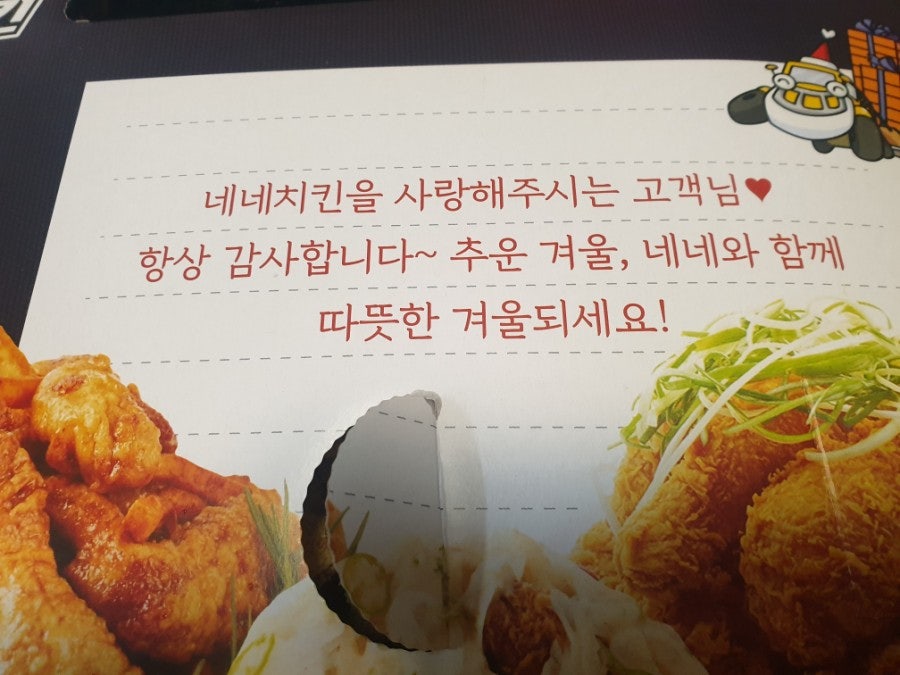 킨
네네치킨을 사랑해주시는 고객님♥
항상 감사합니다~ 추운 겨울, 네네와 함께
따뜻한 겨울되세요!